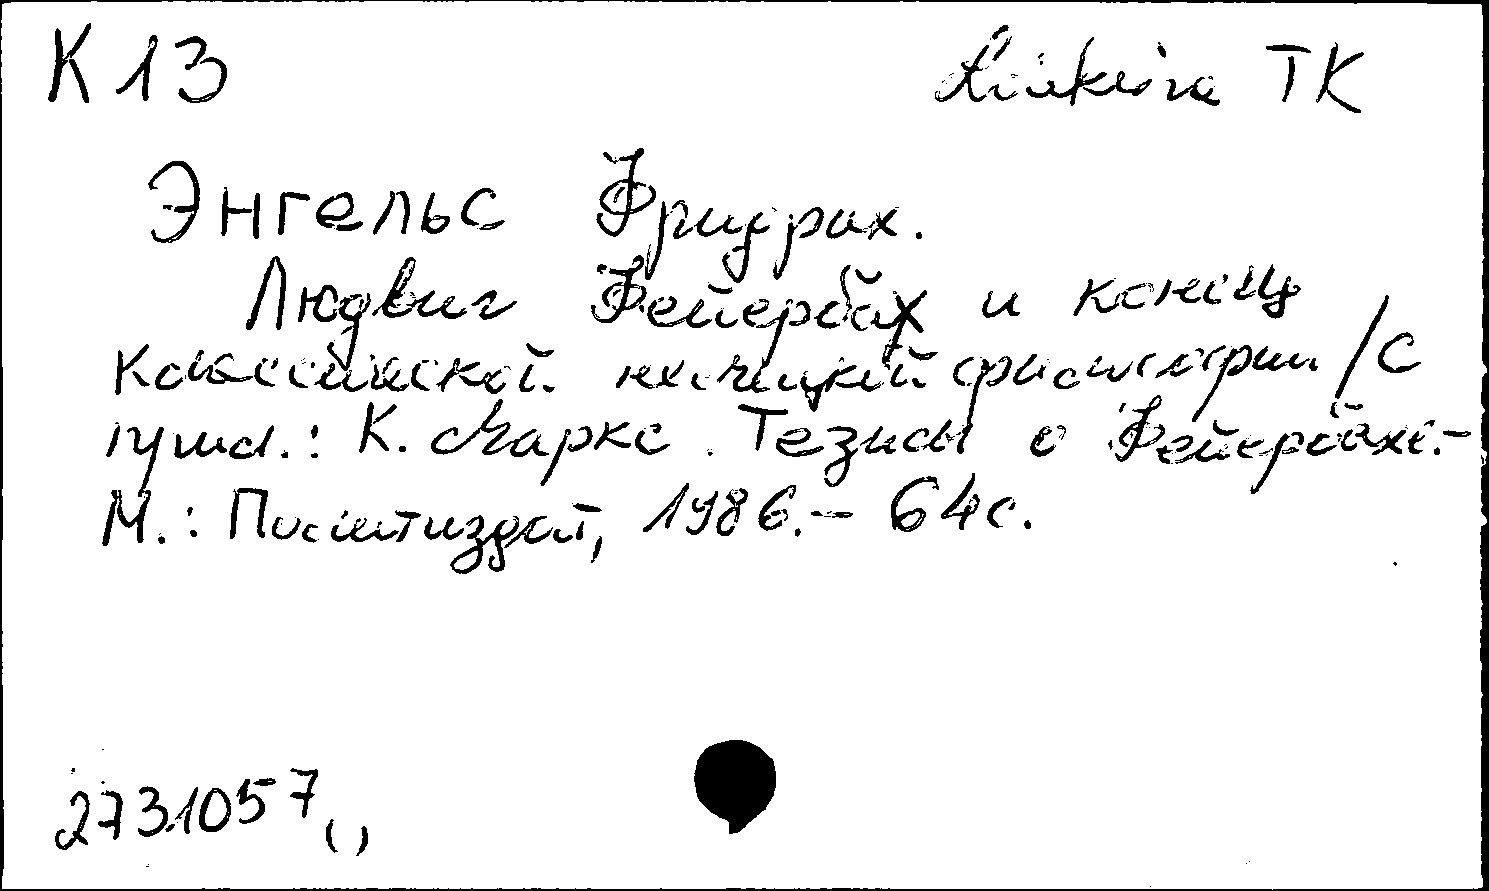 К 13
ТК
Энгельс Фридрих.
Людвиг Фейербах и конец
классической немецкой философии / С
прил.: К. Маркс. Тезисы о Фейербахе.-
М.: Политиздат, 1986.- 64с.
2731057